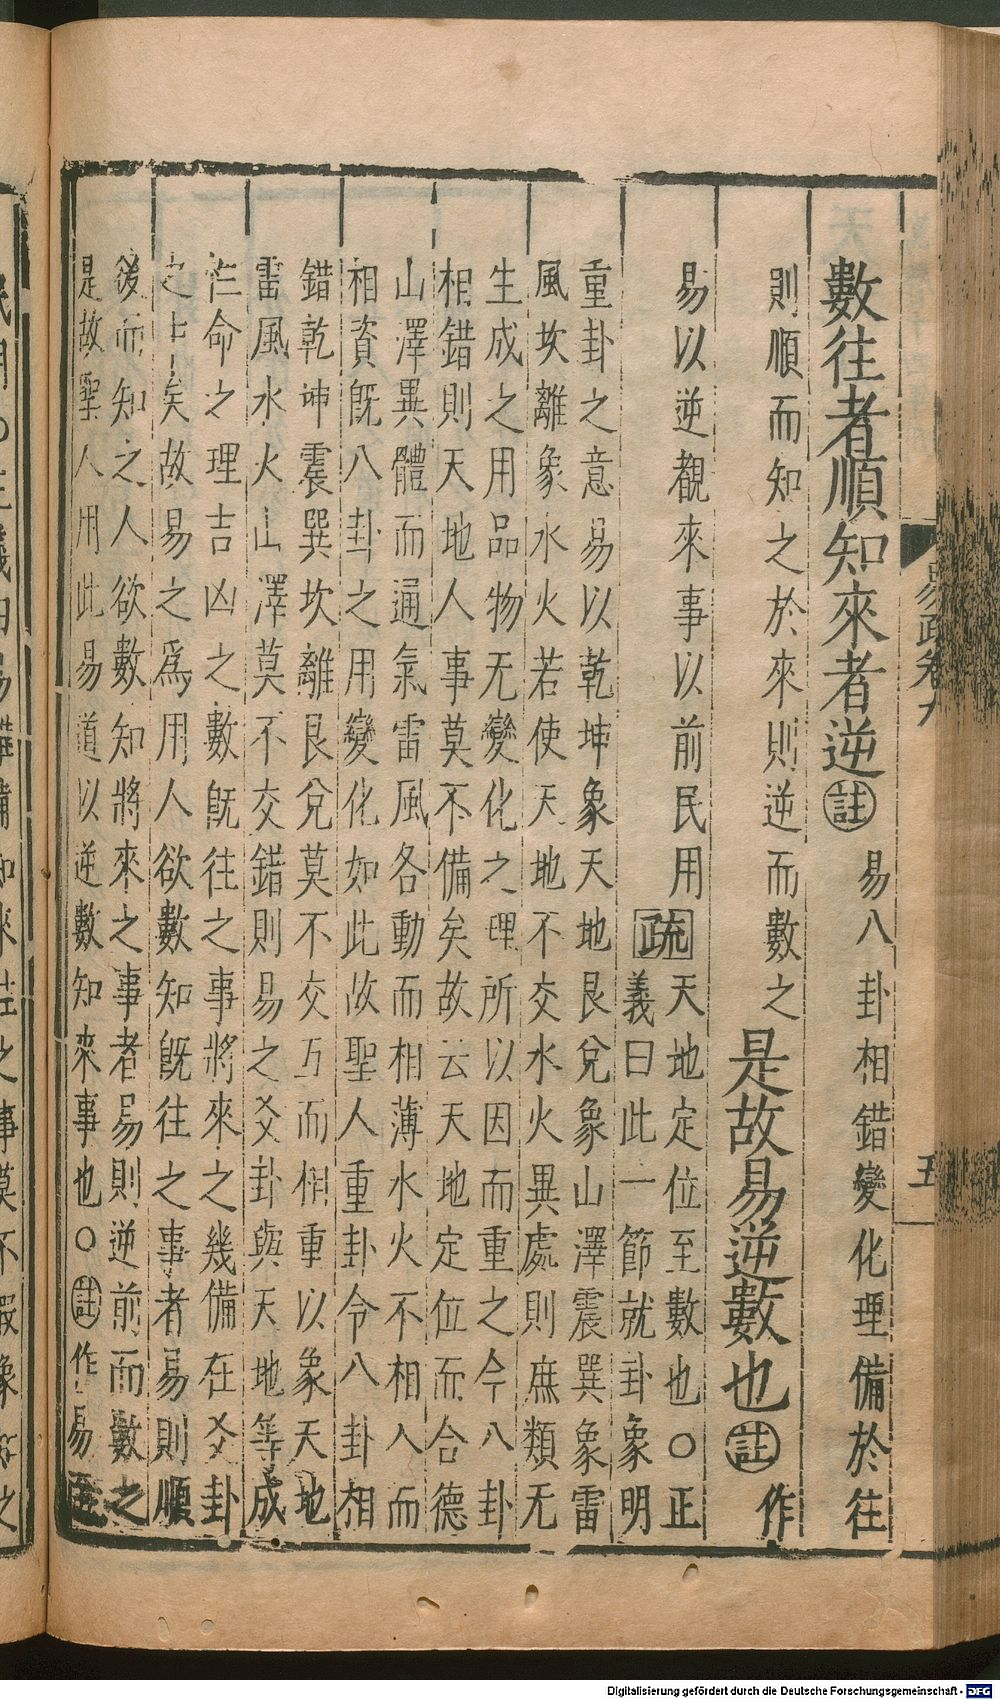 數往者順知來者逆註
易八卦相錯變化理備於往
則順而知之於來則逆而數之
是故易逆數也註
作
易以逆覩來事以前民用
疏
天地定位至數也○正
義曰此一節就卦象明
重卦之意易以乾坤象天地艮兌象山澤震巽象雷
風坎離象水火若使天地不交水火異處則庶類无
生成之用品物无變化之理所以因而重之今八卦
相錯則天地人事莫不備矣故云天地定位而合德
山澤異體而通氣雷風各動而相薄水火不相入而
相資旣八卦之用變化如此故聖人重卦令八卦相
錯乾坤震巽坎離艮兌莫不交互而相重以象天地
雷風水火山澤莫不交錯則易之爻卦與天地等成
性命之理吉凶之數旣往之事將來之幾備在爻卦
之中矣故易之爲用人欲數知旣往之事者易則順
後而知之人欲數知將來之事者易則逆前而數之
是故聖人用此易道以逆數知來事也○註作易至
易疏卷九
五
Digitalisierung gefördert durch die Deutsche Forschungsgemeinschaft - DFG